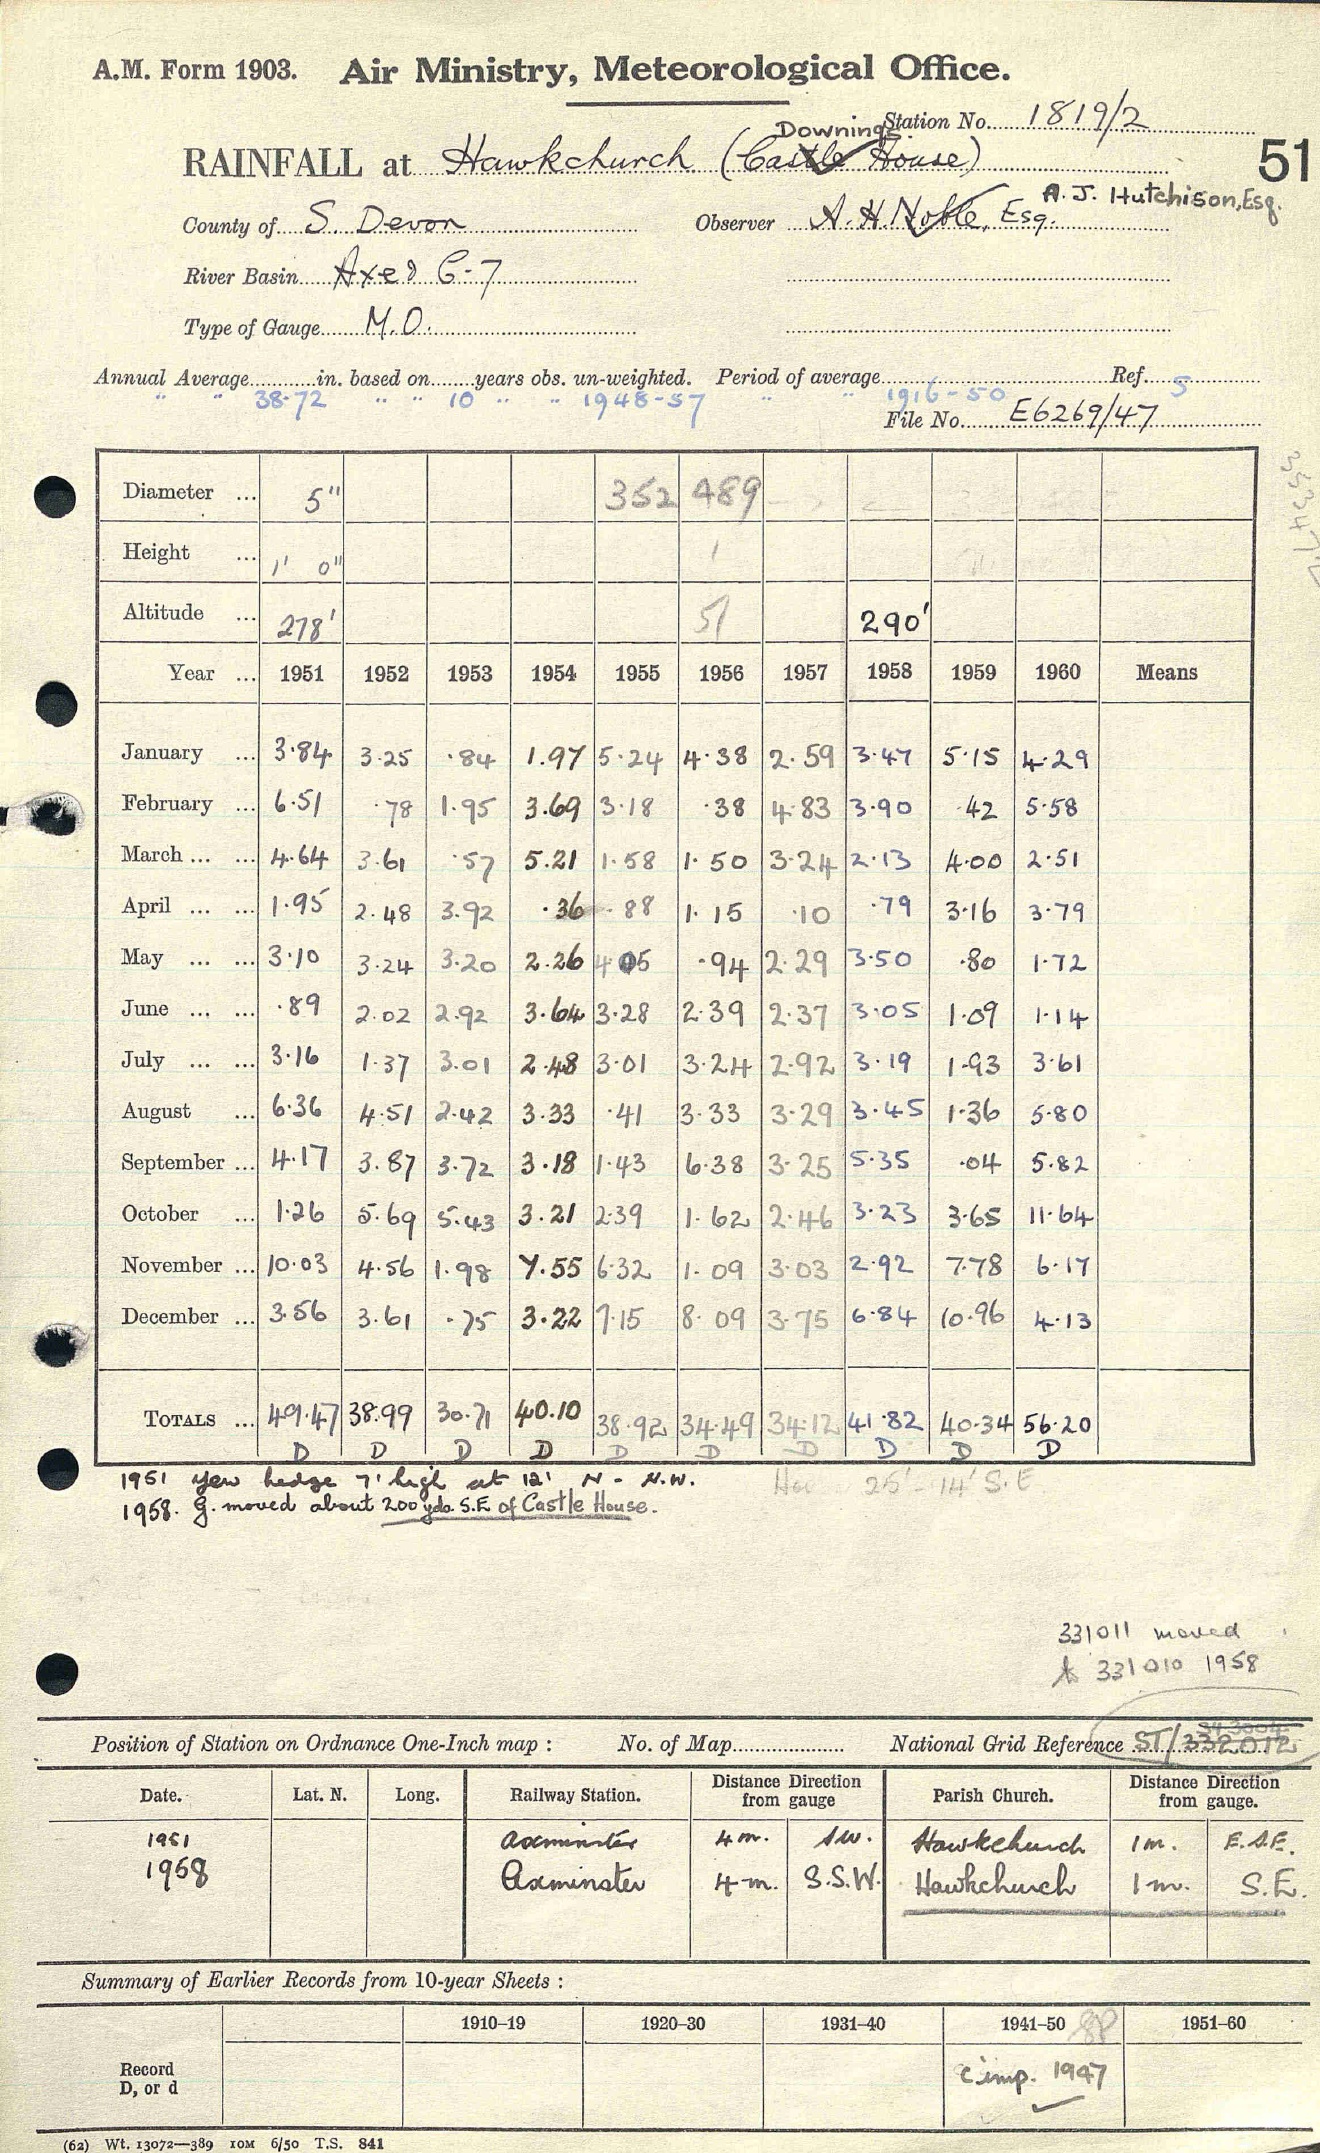 A.M. Form 1903. Air Ministry, Meteorological Office.
Station No. 1819/2
Downings
RAINFALL at Hawkchurch (Castle House)
51
A. J. Hutchison, Esq.
County of S. Devon Observer A. H. Noble, Esq.
River Basin Axe & C-7
Type of Gauge M.O.
Annual Average in. based on years obs. un-weighted. Period of average Ref. 5
" " 38.72 " " 10 " " 1948-57 " " 1916-50
File No. E6269/47
Diameter ... 5" 352 489
Height ... 1' 0" 1
Altitude ... 278' 51 290'
Year ... 1951 1952 1953 1954 1955 1956 1957 1958 1959 1960 Means
January ... 3.84 3.25 .84 1.97 5.24 4.38 2.59 3.47 5.15 4.29
February ... 6.51 .78 1.95 3.69 3.18 .38 4.83 3.90 .42 5.58
March ... ... 4.64 3.61 .57 5.21 1.58 1.50 3.24 2.13 4.00 2.51
April ... ... 1.95 2.48 3.92 .36 .88 1.15 .10 .79 3.16 3.79
May ... ... 3.10 3.24 3.20 2.26 4.05 .94 2.29 3.50 .80 1.72
June ... ... .89 2.02 2.92 3.64 3.28 2.39 2.37 3.05 1.09 1.14
July ... ... 3.16 1.37 3.01 2.48 3.01 3.24 2.92 3.19 1.93 3.61
August ... 6.36 4.51 2.42 3.33 .41 3.33 3.29 3.45 1.36 5.80
September ... 4.17 3.87 3.72 3.18 1.43 6.38 3.25 5.35 .04 5.82
October ... 1.26 5.69 5.43 3.21 2.39 1.62 2.46 3.23 3.65 11.64
November ... 10.03 4.56 1.98 7.55 6.32 1.09 3.03 2.92 7.78 6.17
December ... 3.56 3.61 .75 3.22 7.15 8.09 3.75 6.84 10.96 4.13
TOTALS ... 49.47 38.99 30.71 40.10 38.92 34.49 34.12 41.82 40.34 56.20
D D D D D D D D D D
1951 Yew hedge 7' high at 12' N - N.W. 25' - 14' S.E
1958. G. moved about 200 yds S.E of Castle House.
331011 moved
to 331010 1958
Position of Station on Ordnance One-Inch map : No. of Map National Grid Reference ST/332012
Date. Lat. N. Long. Railway Station. Distance Direction from gauge Parish Church. Distance Direction from gauge.
1951 Axminster 4 m. SW. Hawkchurch 1 m. E.S.E.
1958 Axminster 4 m. S.S.W. Hawkchurch 1 m. S.E.
Summary of Earlier Records from 10-year Sheets :
1910-19 1920-30 1931-40 1941-50 1951-60
Record
D, or d
c imp. 1947
(62) Wt. 13072—389 10M 6/50 T.S. 841